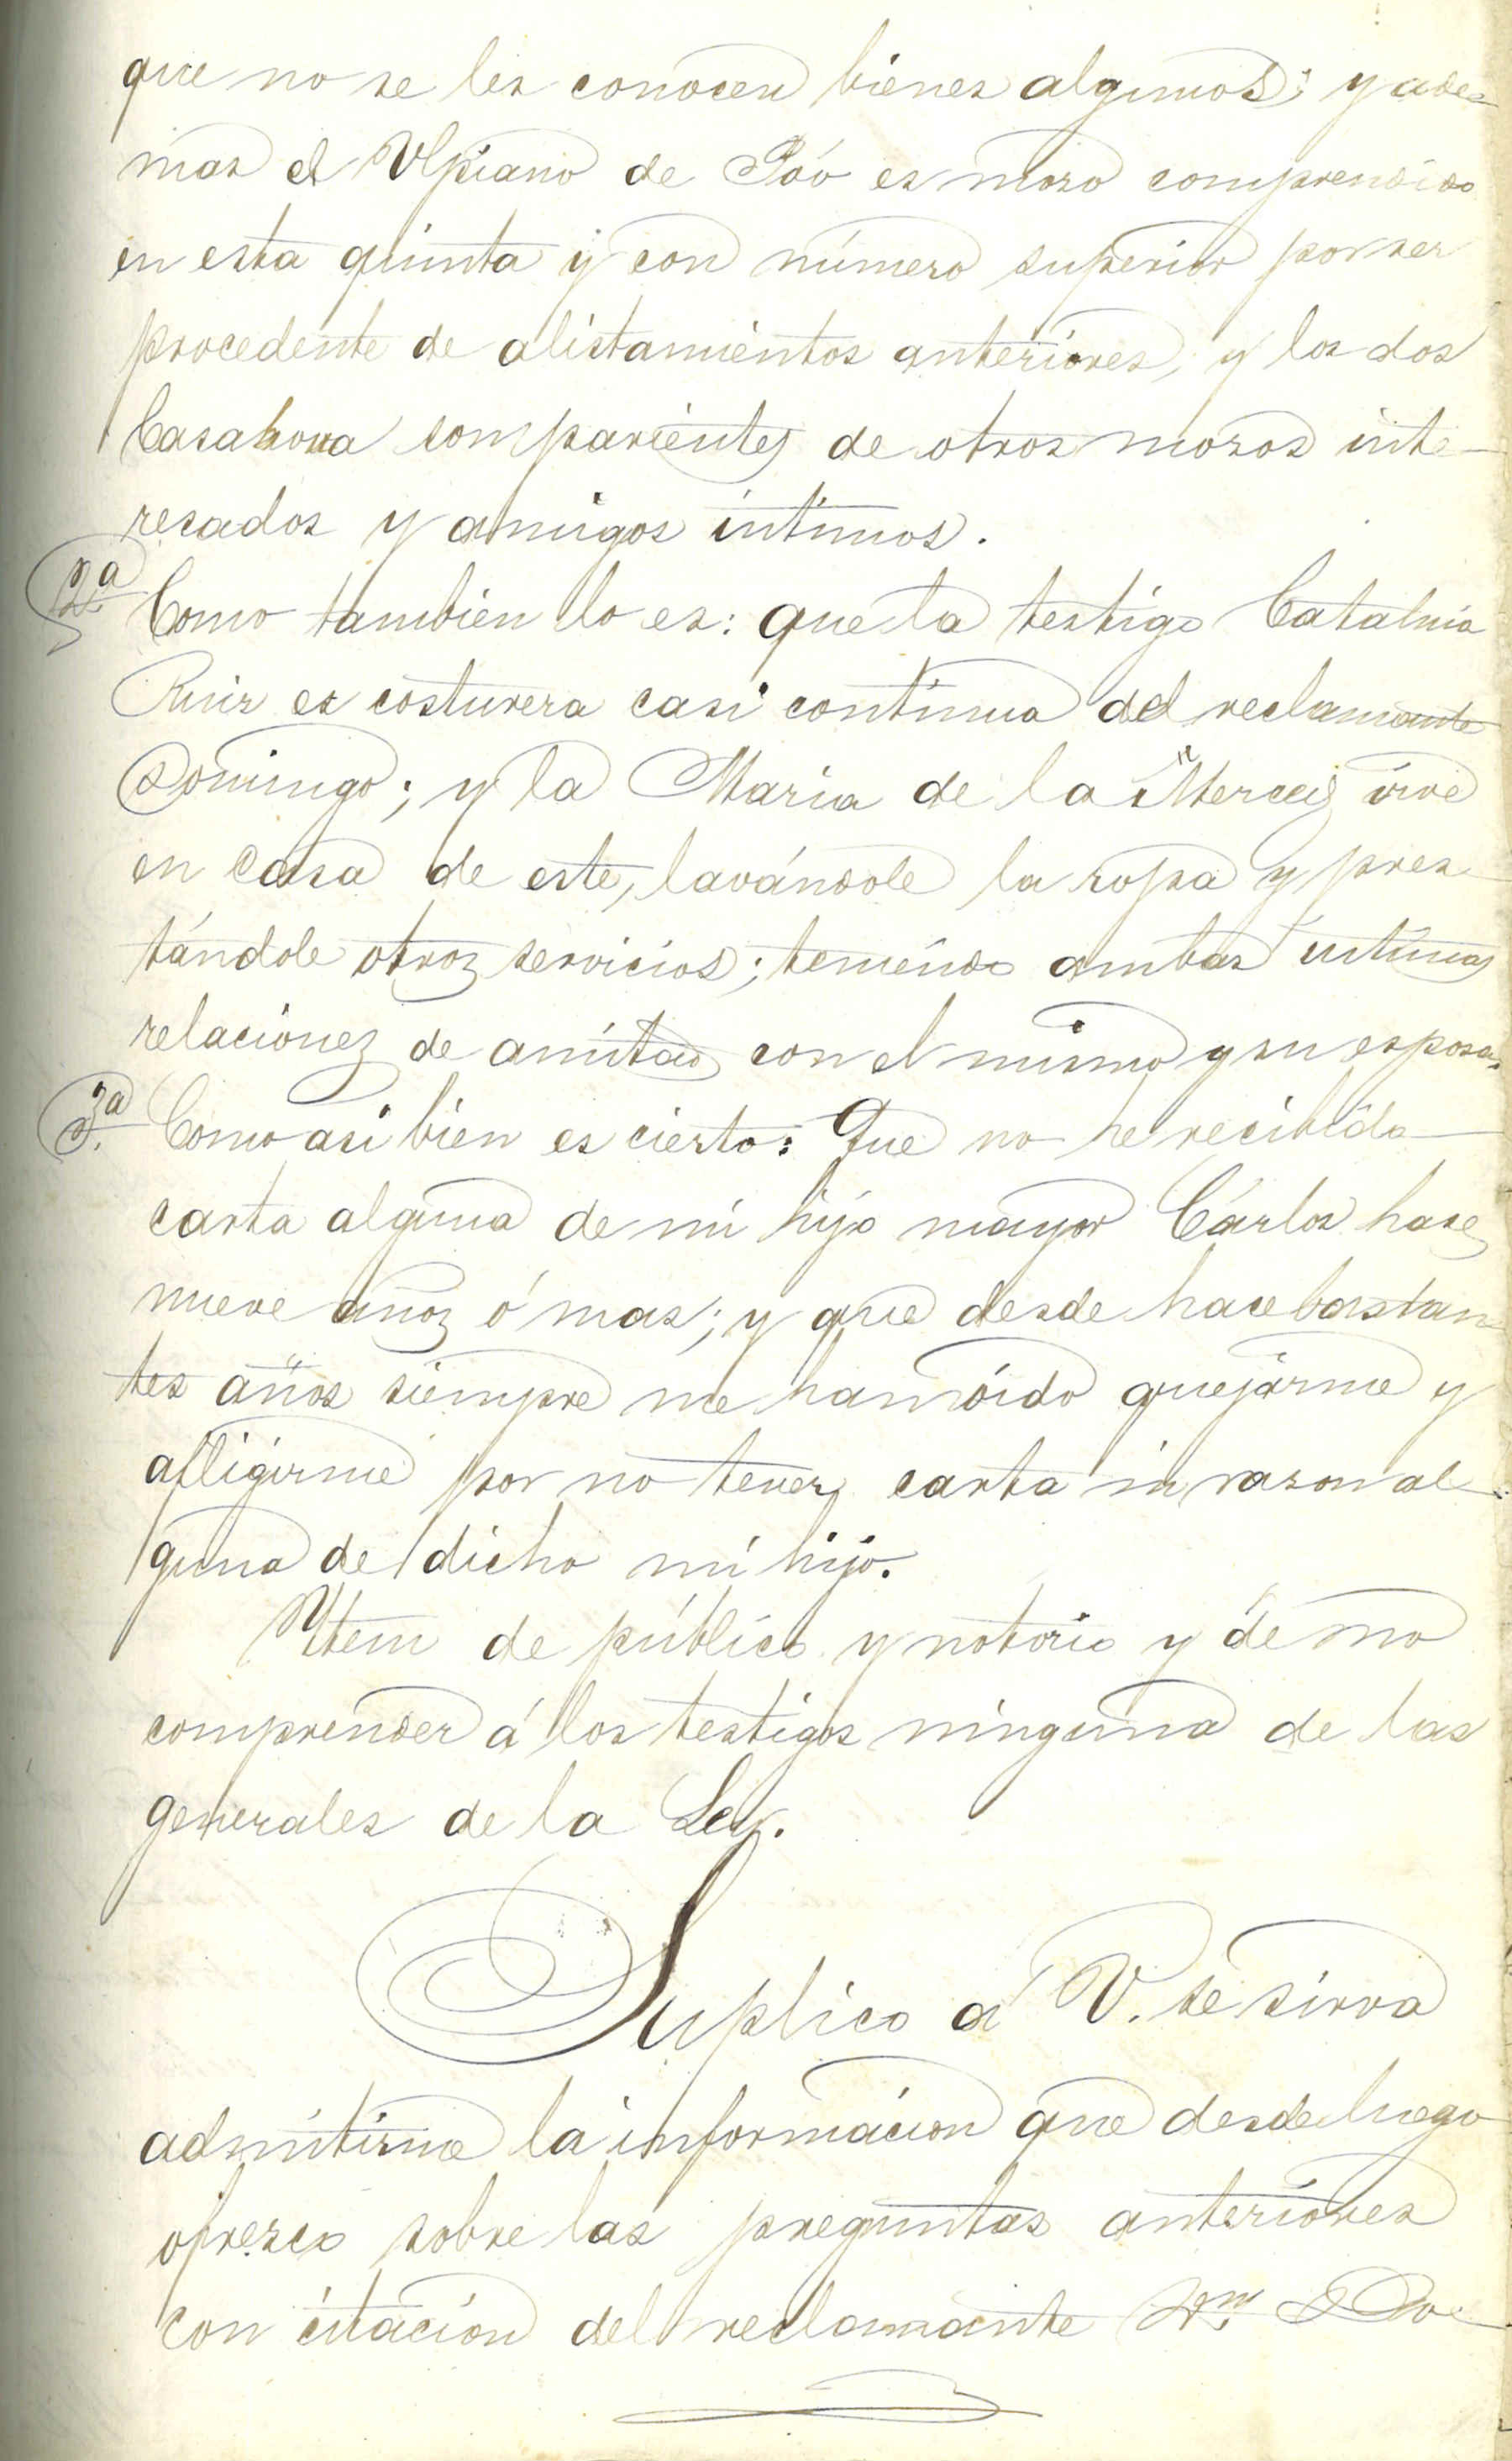 que no se les conocen bienes algunos; y ade-
mas el Ulpiano de Póo es moso comprendido
en esta quinta y con número superior por ser
procedente de alistamientos anteriores, y los dos
Casanova comparientes de otros mosos inte-
resados y amigos íntimos.
2ª Como tambien lo es: que la testigo Catalina
Ruiz es costurera casi contínua del reclamante
Domingo; y la Maria de la Merced vive
en casa de este, lavándole la ropa y pres-
tándole otros servicios; teniendo ambas íntimas
relaciones de amistad con el mismo y su esposa.
3ª Como asi bien es cierto: Que no he recibido
carta alguna de mi hijo mayor Cárlos hase
nueve años ó mas; y que desde hace bastan-
tes años siempre me han oido quejarme y
afligirme por no tener carta ni rason al-
guna de dicho mi hijo.
Ytem de público y notorio y de no
comprender á los testigos ninguna de las
generales de la Ley.
Suplico á V. se sirva
admitirme la informacion que desde luego
ofresco sobre las preguntas anteriores
con citacion del reclamante